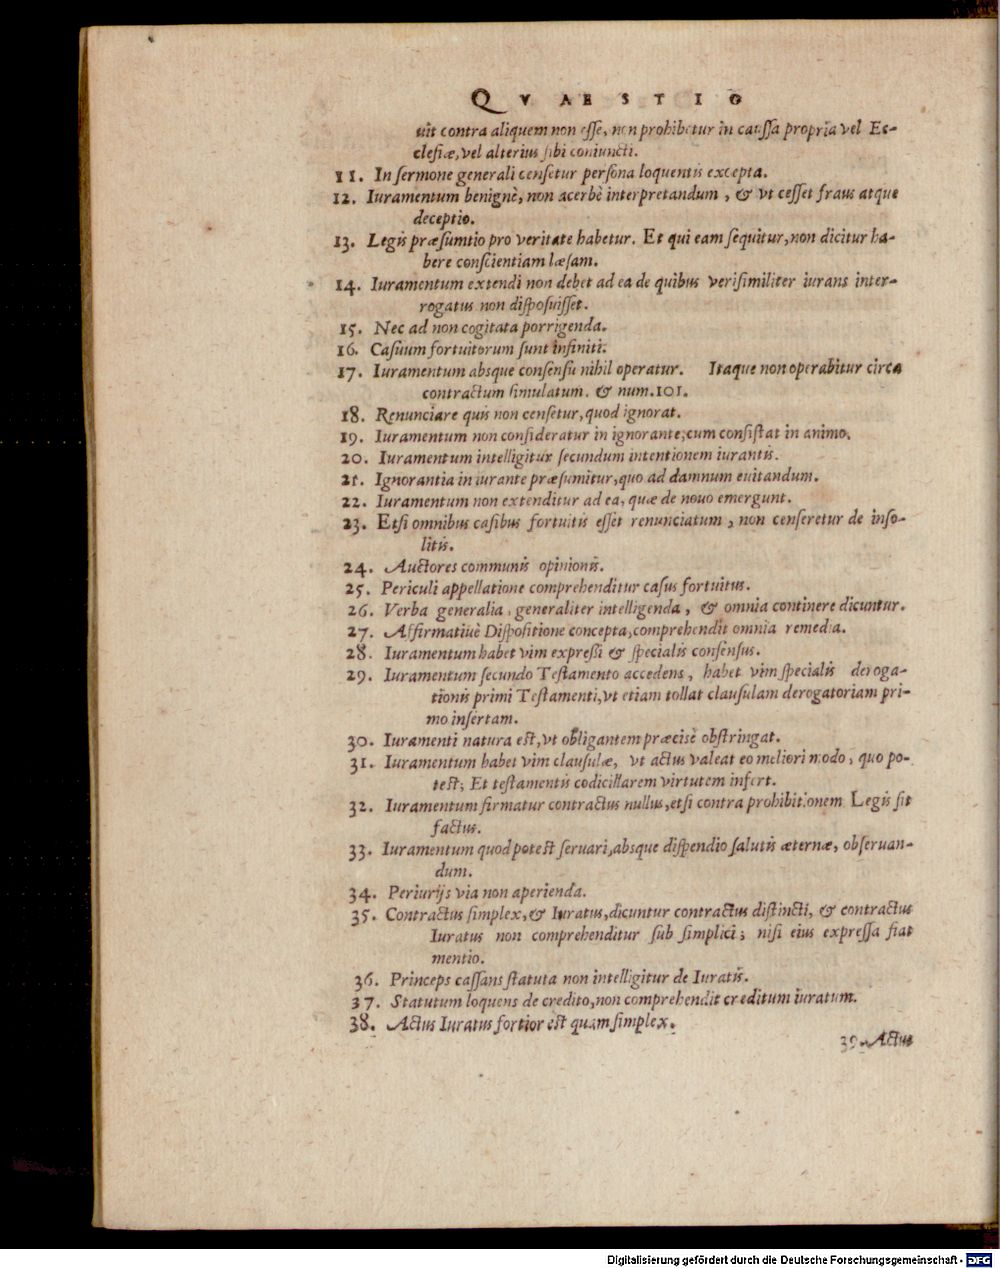 QVAESTIO
uit contra aliquem non esse, non prohibetur in caussa propria vel Ec-
clesiæ, vel alterius sibi coniuncti.
11. In sermone generali censetur persona loquentis excepta.
12. Iuramentum benignè, non acerbè interpretandum, & vt cesset fraus atque
deceptio.
13. Legis præsumtio pro veritate habetur. Et qui eam sequitur, non dicitur ha-
bere conscientiam læsam.
14. Iuramentum extendi non debet ad ea de quibus verisimiliter iurans inter-
rogatus non disposuisset.
15. Nec ad non cogitata porrigenda.
16. Casuum fortuitorum sunt infiniti.
17. Iuramentum absque consensu nihil operatur. Itaque non operabitur circa
contractum simulatum. & num. 101.
18. Renunciare quis non censetur, quod ignorat.
19. Iuramentum non consideratur in ignorante; cum consistat in animo.
20. Iuramentum intelligitur secundum intentionem iurantis.
21. Ignorantia in iurante præsumitur, quo ad damnum euitandum.
22. Iuramentum non extenditur ad ea, quæ de nouo emergunt.
23. Etsi omnibus casibus fortuitis esset renunciatum, non censeretur de inso-
litis.
24. Auctores communis opinionis.
25. Periculi appellatione comprehenditur casus fortuitus.
26. Verba generalia, generaliter intelligenda, & omnia continere dicuntur.
27. Affirmatiuè Dispositione concepta, comprehendit omnia remedia.
28. Iuramentum habet vim expressi & specialis consensus.
29. Iuramentum secundo Testamento accedens, habet vim specialis deroga-
tionis primi Testamenti, vt etiam tollat clausulam derogatoriam pri-
mo insertam.
30. Iuramenti natura est, vt obligantem præcisè obstringat.
31. Iuramentum habet vim clausulæ, vt actus valeat eo meliori modo, quo po-
test; Et testamentis codicillarem virtutem infert.
32. Iuramentum firmatur contractus nullus, etsi contra prohibitionem Legis sit
factus.
33. Iuramentum quod potest seruari, absque dispendio salutis æternæ, obseruan-
dum.
34. Periurijs via non aperienda.
35. Contractus simplex, & Iuratus, dicuntur contractus distincti, & contractus
Iuratus non comprehenditur sub simplici; nisi eius expressa fiat
mentio.
36. Princeps cassans statuta non intelligitur de Iuratis.
37. Statutum loquens de credito, non comprehendit creditum iuratum.
38. Actus Iuratus fortior est quam simplex.
39. Actus
Digitalisierung gefördert durch die Deutsche Forschungsgemeinschaft - DFG